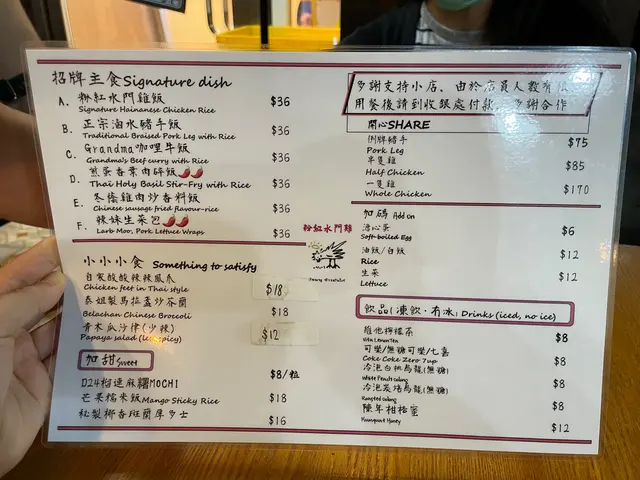 招牌主食Signature dish
A. 粉紅水門雞飯 $36
Signature Hainanese Chicken Rice
B. 正宗滷水豬手飯 $36
Traditional Braised Pork Leg with Rice
C. Grandma咖哩牛飯 $36
Grandma's Beef curry with Rice
D. 煎蛋香葉肉碎飯 $36
Thai Holy Basil Stir-Fry with Rice
E. 冬蔭雞肉炒香料飯 $36
Chinese sausage fried flavour-rice
F. 辣妹生菜包 $36
Larb Moo, Pork Lettuce Wraps
小小小食 Something to satisfy
自家酸酸辣辣鳳爪 $18
Chicken feet in Thai style
泰姐製馬拉盞炒芥蘭 $18
Belachan Chinese Broccoli
青木瓜沙律(少辣) $12
Papaya salad (less spicy)
加甜 Sweet
D24榴槤麻糬MOCHI $8/粒
芒果糯米飯Mango Sticky Rice $18
秘製椰香班蘭厚多士 $16
粉紅水門雞
多謝支持小店，由於店員人數有
用餐後請到收銀處付款，多謝合作
開心SHARE
例牌豬手 $75
Pork Leg
半隻雞 $85
Half Chicken
一隻雞 $170
Whole Chicken
加碼 Add on
溏心蛋 $6
Soft-boiled Egg
油飯/白飯 $12
Rice
生菜 $12
Lettuce
飲品(凍飲·冇冰) Drinks (iced, no ice)
維他檸檬茶 $8
Vita Lemon Tea
可樂/無糖可樂/七喜 $8
Coke Coke Zero 7up
冷泡白桃烏龍(無糖) $8
White Peach Oolong
冷泡炭焙烏龍(無糖) $8
Roasted Oolong
陳年柑桔蜜 $12
Kumquat Honey